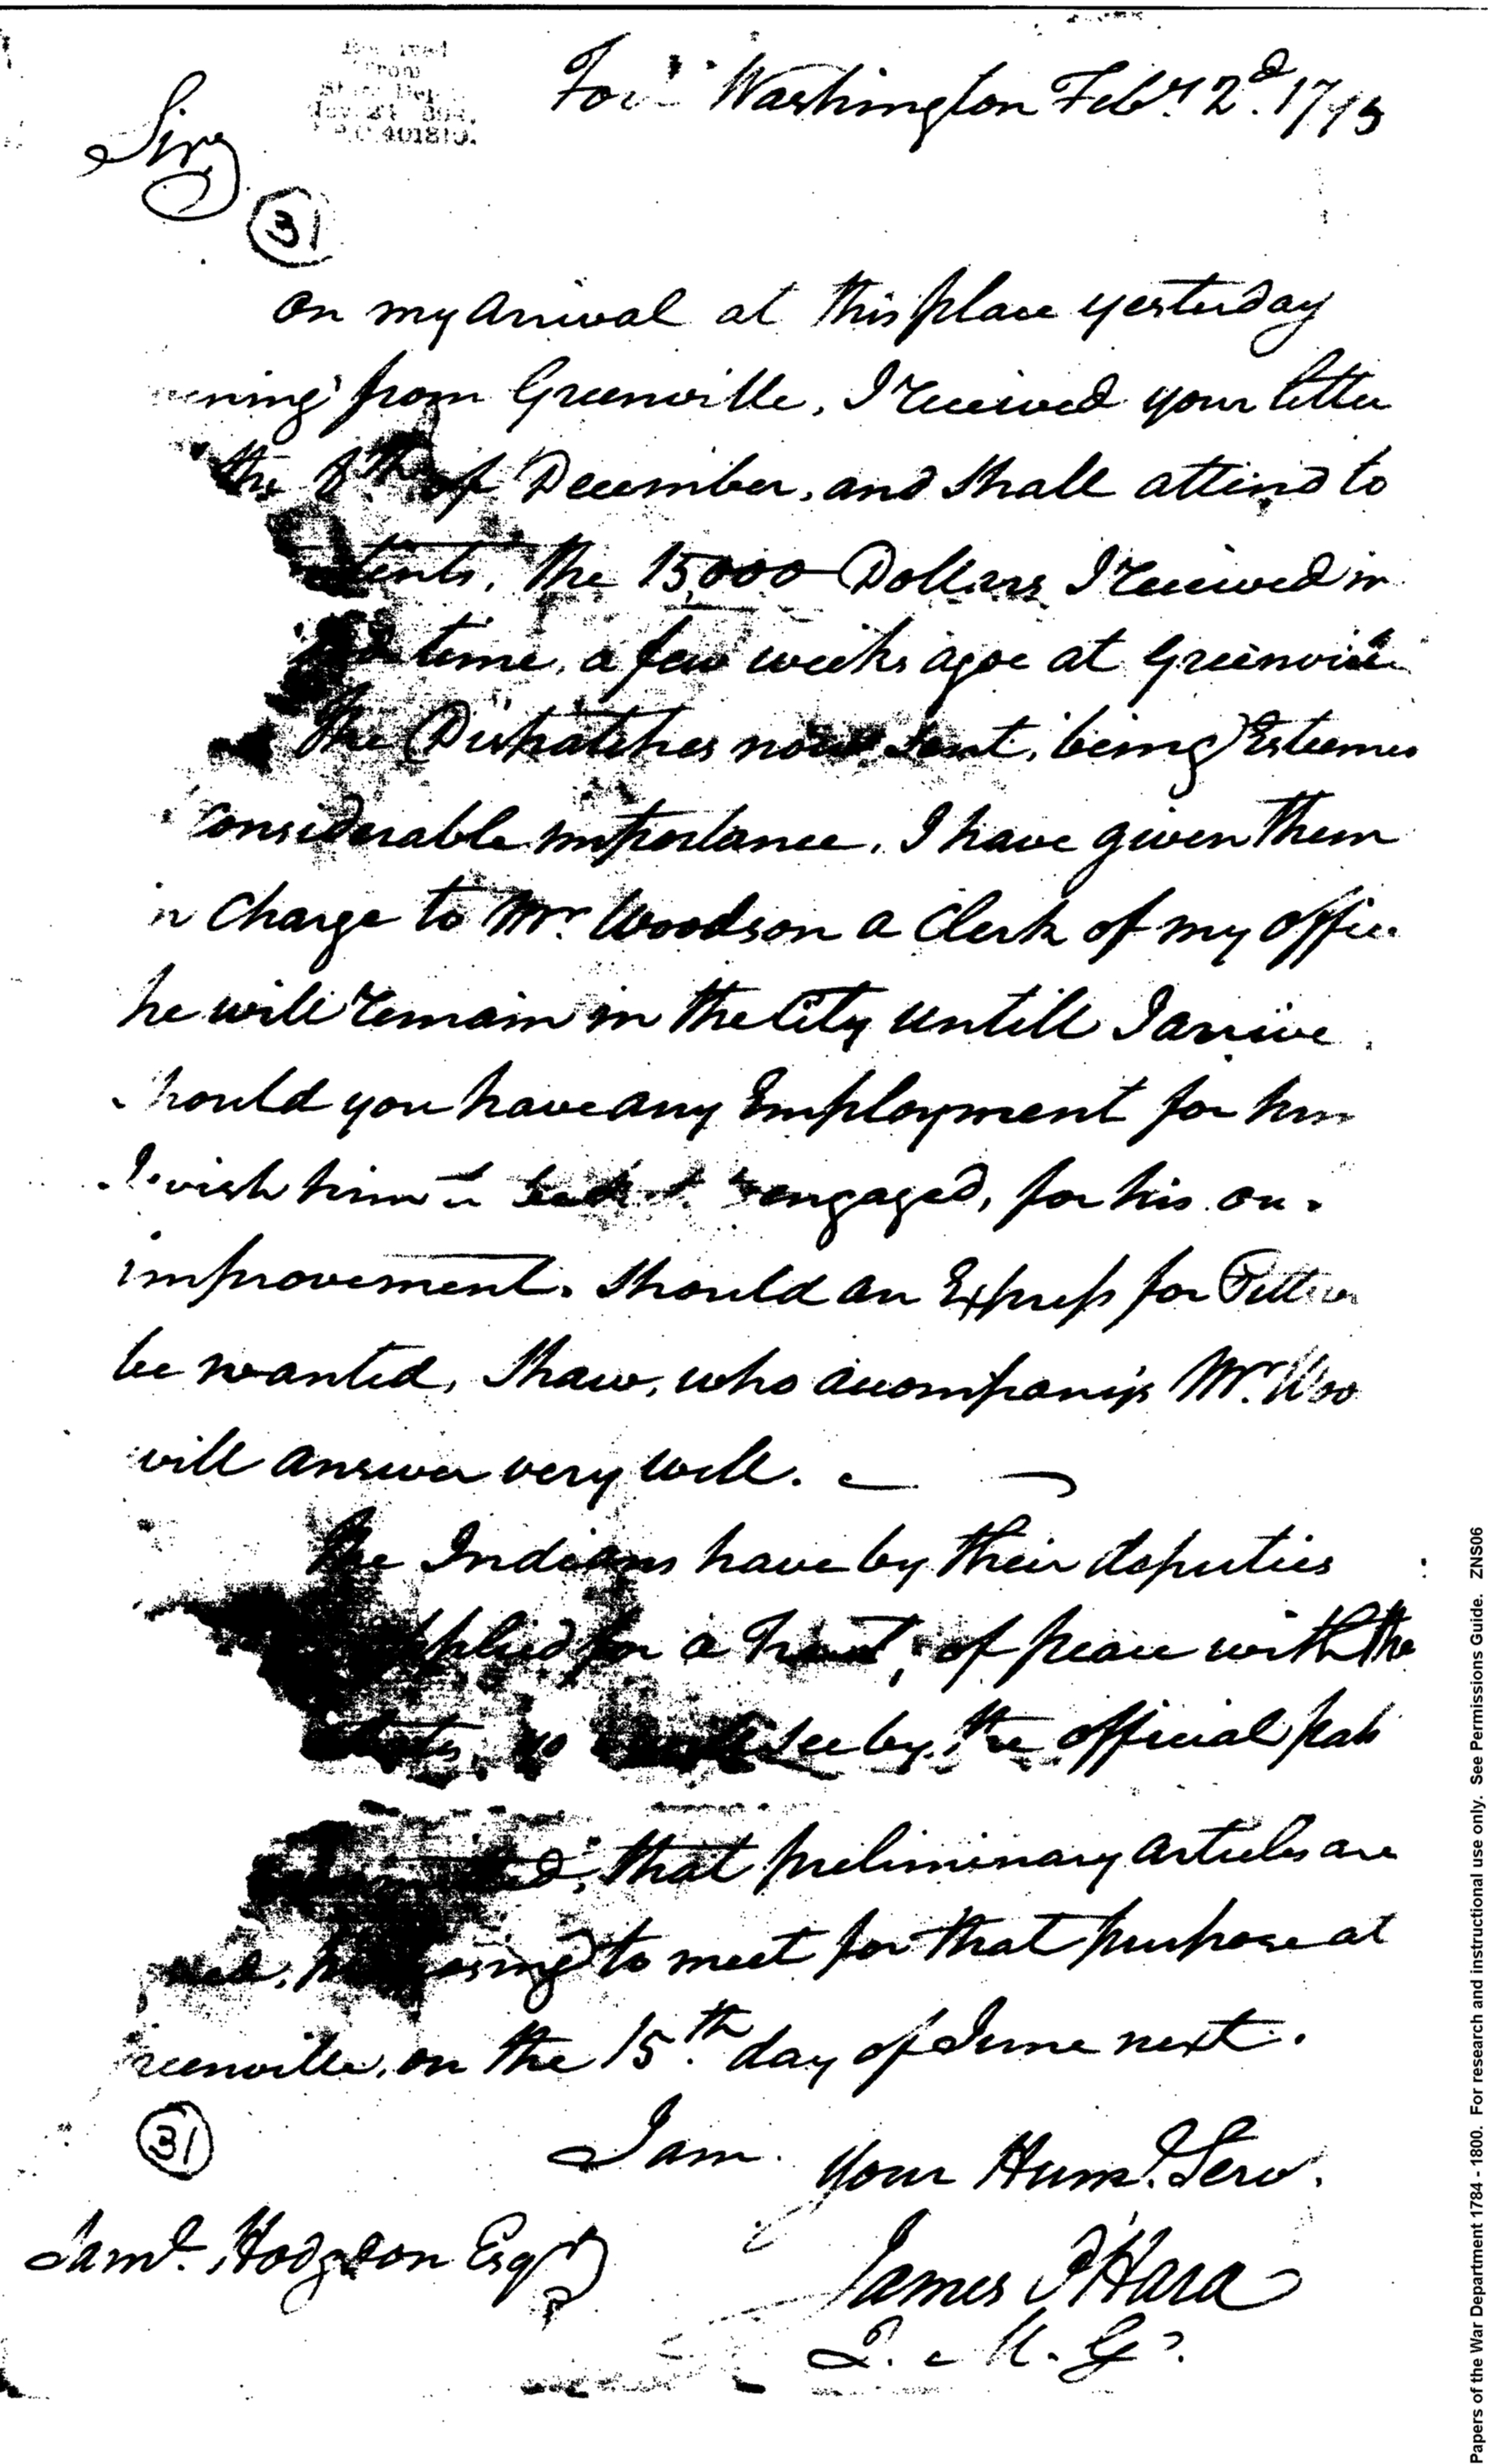 Fort Washington Feb.y 2.d 1795
Sir,
31
On my Arrival at this place yesterday
from Greenville, I received your letter
the 8th of December, and shall attend to
the 15,000 Dollars I received in
time, a few weeks agoe at Greenville
The Dispatches now sent, being Esteemed
Considerable importance, I have given them
in Charge to Mr. Woodson a Clerk of my office
he will remain in the City untill I arrive
should you have any Employment for him
I wish him engaged, for his own
improvement. Should an Express for
be wanted, Shaw, who accompanys Mr. Woo
will answer very well.
The Indians have by their deputies
applied for a Treaty of peace with the
see by the official
that preliminary articles are
to meet for that purpose at
Greenville, on the 15.th day of June next.
31
I am
Your Hum.l Serv.
Sam.l Hodgdon Esq.r
James O'Hara
Q. M. G.
Papers of the War Department 1784 - 1800. For research and instructional use only. See Permissions Guide. ZNS06